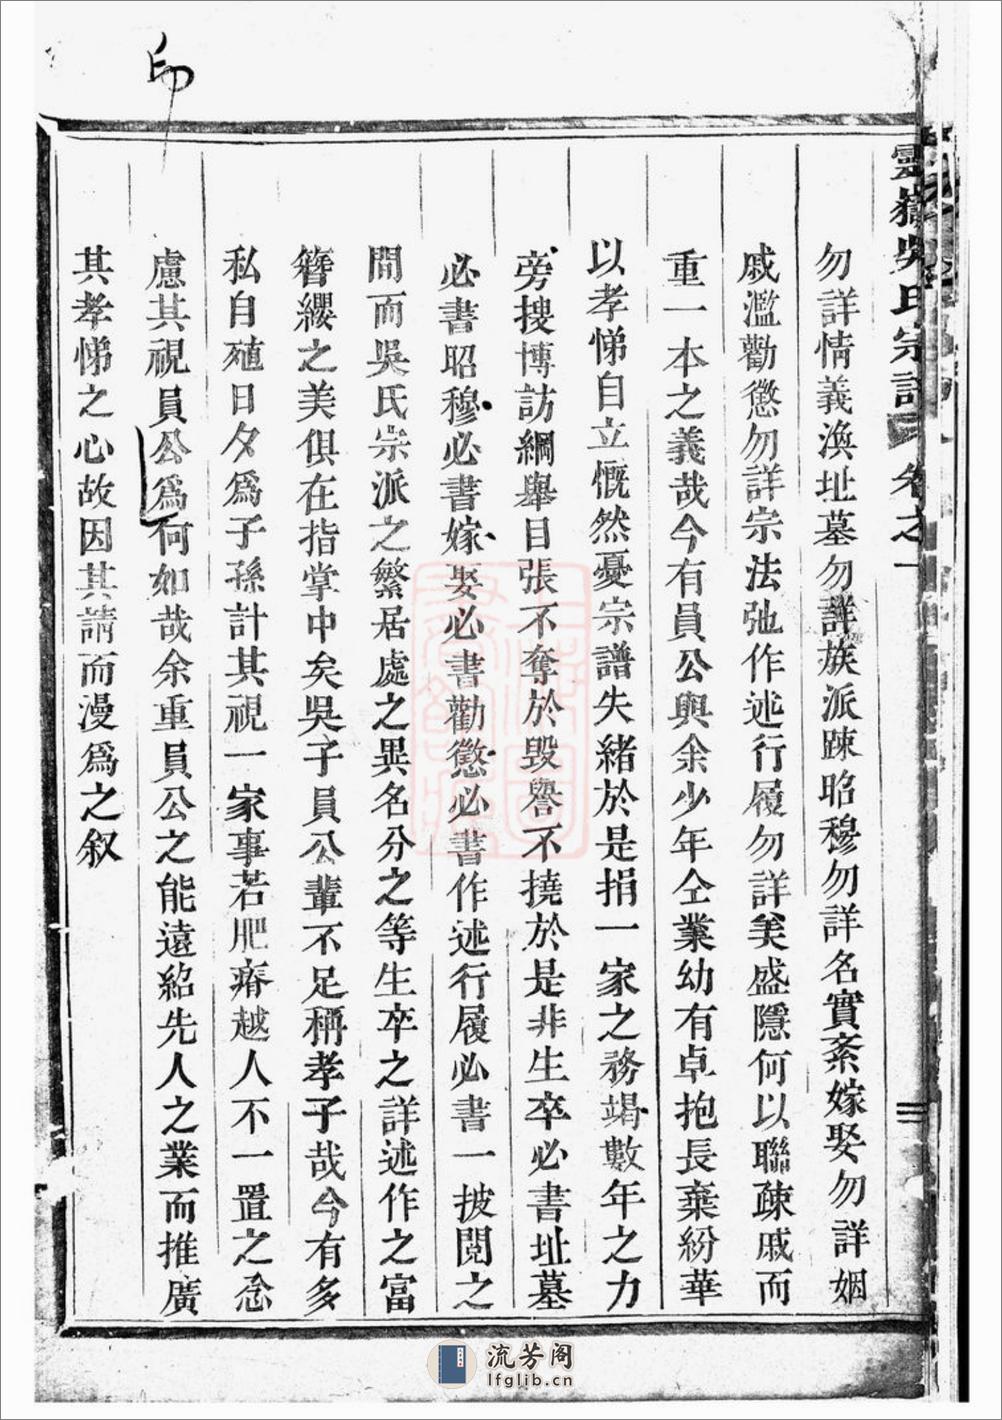 印
靈嶽吳氏宗譜 卷之一
三
勿詳情義渙址墓勿詳族派踈昭穆勿詳名實紊嫁娶勿詳姻
戚濫勸懲勿詳宗法弛作述行履勿詳美盛隱何以聯疎戚而
重一本之義哉今有員公與余少年仝業幼有卓抱長棄紛華
以孝悌自立慨然憂宗譜失緒於是捐一家之務竭數年之力
旁搜博訪綱舉目張不奪於毀譽不撓於是非生卒必書址墓
必書昭穆必書嫁娶必書勸懲必書作述行履必書一披閱之
間而吳氏宗派之繁居處之異名分之等生卒之詳述作之富
簪纓之美俱在指掌中矣吳子員公輩不足稱孝子哉今有多
私自殖日夕爲子孫計其視一家事若肥瘠越人不一置之念
慮其視員公爲何如哉余重員公之能遠紹先人之業而推廣
其孝悌之心故因其請而漫爲之叙
流芳阁
lfglib.cn